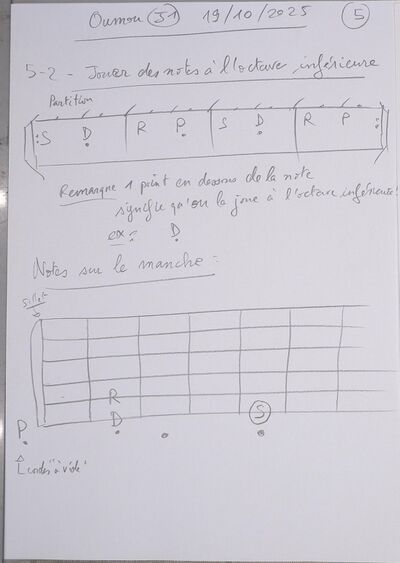 Oumou J1 19/10/2025 5
5-2 - Jouer des notes à l'octave inférieure
Partition
:S Ḍ R P̣ S Ḍ R P̣ :
Remarque 1 point en dessous de la note
signifie qu'on la joue à l'octave inférieure!
ex: Ḍ
Notes sur le manche:
Sillet
R
P̣ Ḍ . Ṣ
corde "à vide"